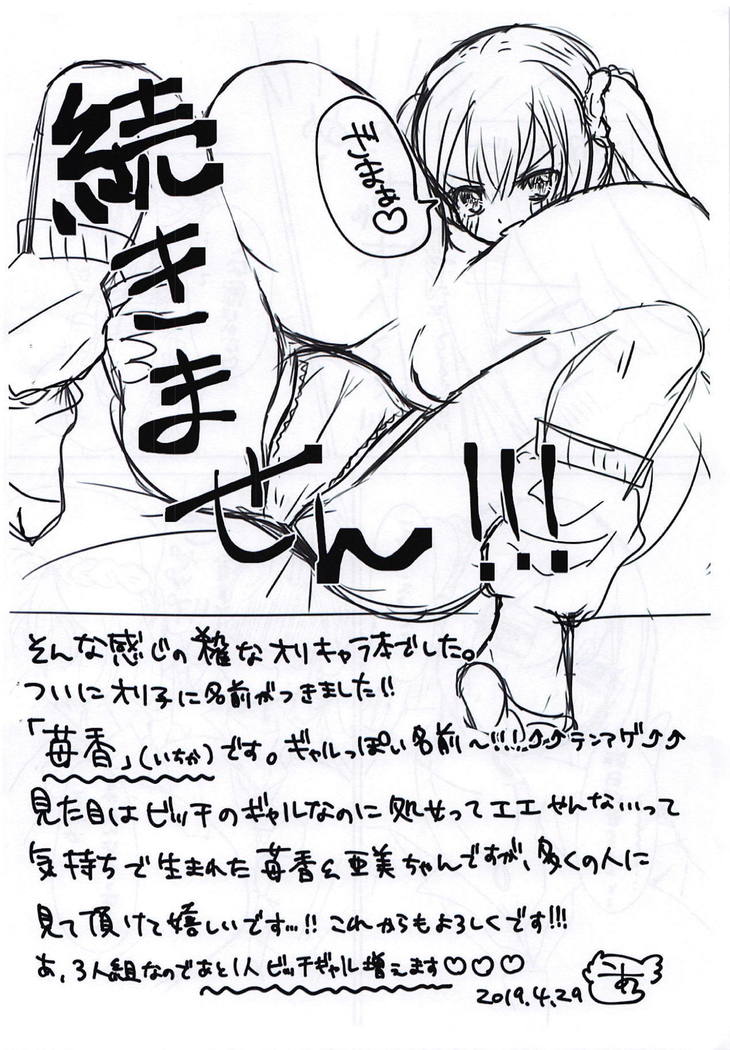 続きません!!!
ギュ♡
そんな感じの雑なオリキャラ本でした。
ついにオリ子に名前がつきました!!
「苺香」(いちか)です。ギャルっぽい名前〜!!!⤴⤴テンアゲ⤴⤴
見た目はビッチのギャルなのに処女ってエエやんない!!って
気持ちで生まれた苺香&亜美ちゃんですが、多くの人に
見て頂けて嬉しいです…!! これからもよろしくです!!!
あ、3人組なのであと1人ビッチギャル増えます♡♡♡
2019.4.29